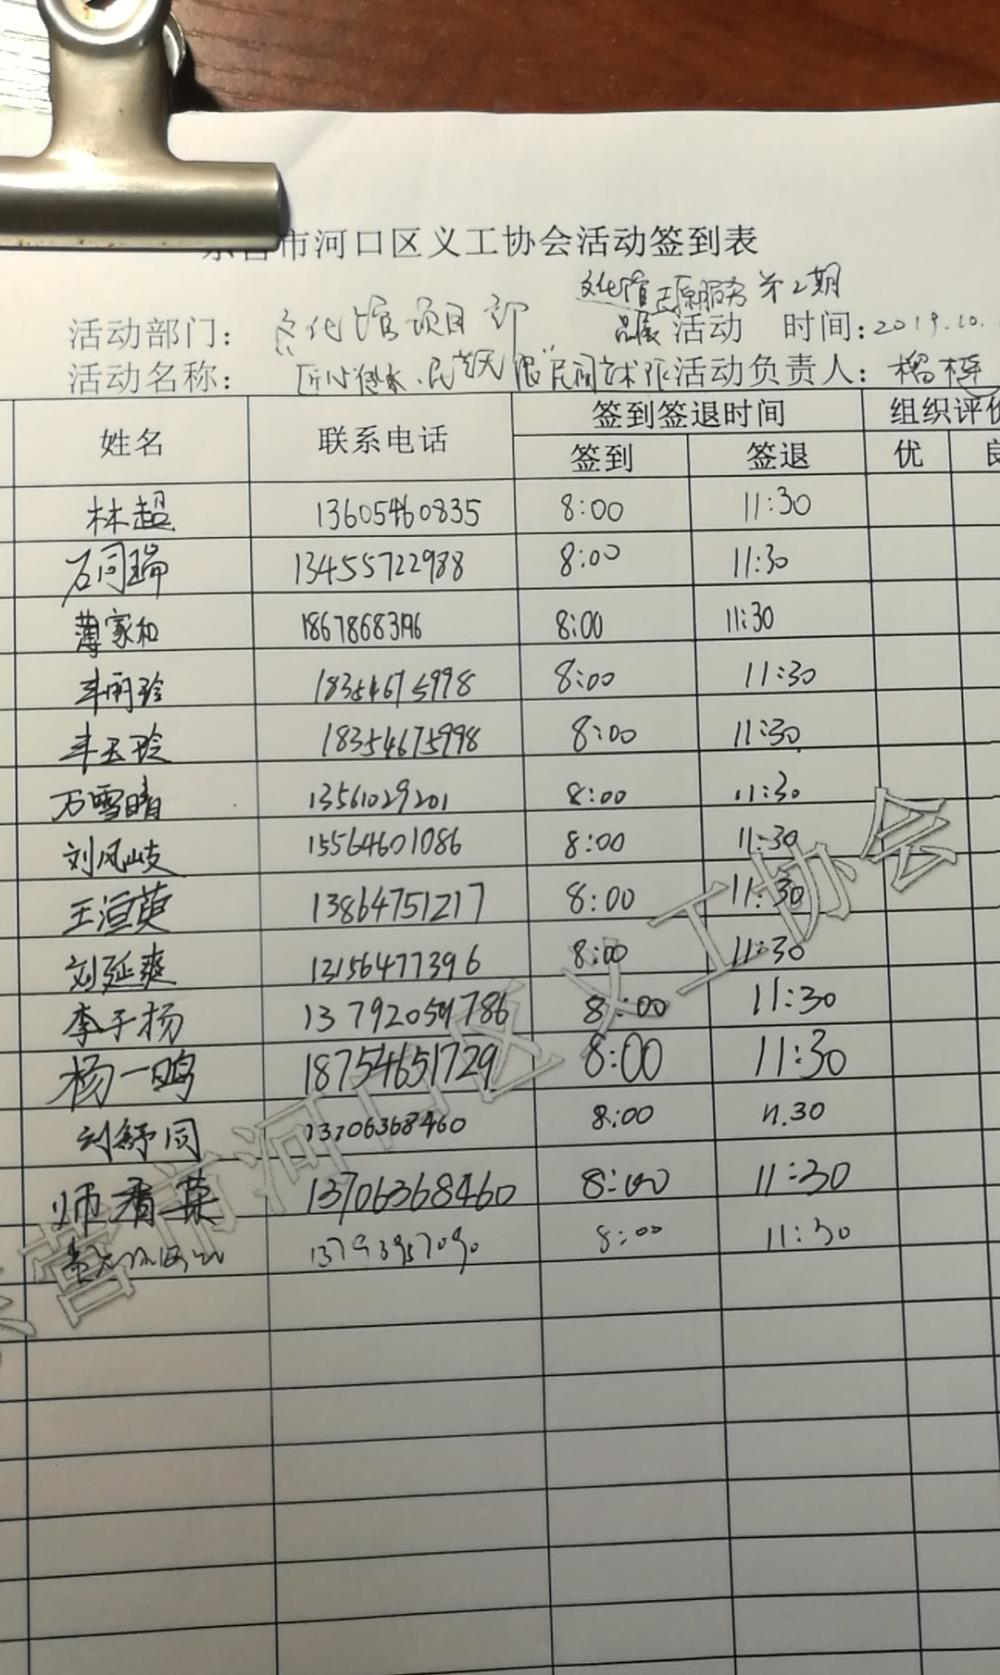 市河口区义工协会活动签到表
文化馆志愿服务第2期
活动部门： 文化馆项目部 品展 活动 时间：2019.10.
活动名称： 匠心 民间艺术 活动负责人：杨
姓名 联系电话 签到签退时间 组织评价
签到 签退 优 良
林超 13605460835 8:00 11:30
石同瑞 13455722988 8:00 11:30
薄家和 18678683196 8:00 11:30
丰雨玲 18354675998 8:00 11:30
丰玉玲 18354675998 8:00 11:30
万雪晴 13561029201 8:00 11:30
刘凤岐 15564601086 8:00 11:30
王洹英 13864751217 8:00 11:30
刘延爽 13156477396 8:00 11:30
李子杨 8:00 11:30
杨一鸣 18754651729 8:00 11:30
刘舒同 13706368460 8:00 11.30
师香菊 13706368460 8:00 11:30
13793957090 8:00 11:30
东营市河口区义工协会